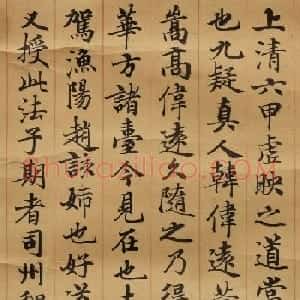 上清六甲虛映之道當
也九疑真人韓偉遠昔
嵩高偉遠久隨之乃得
華方諸臺今見在也
駕漁陽趙該姊也好道
又授此法子期者司州
shufaziliao.com